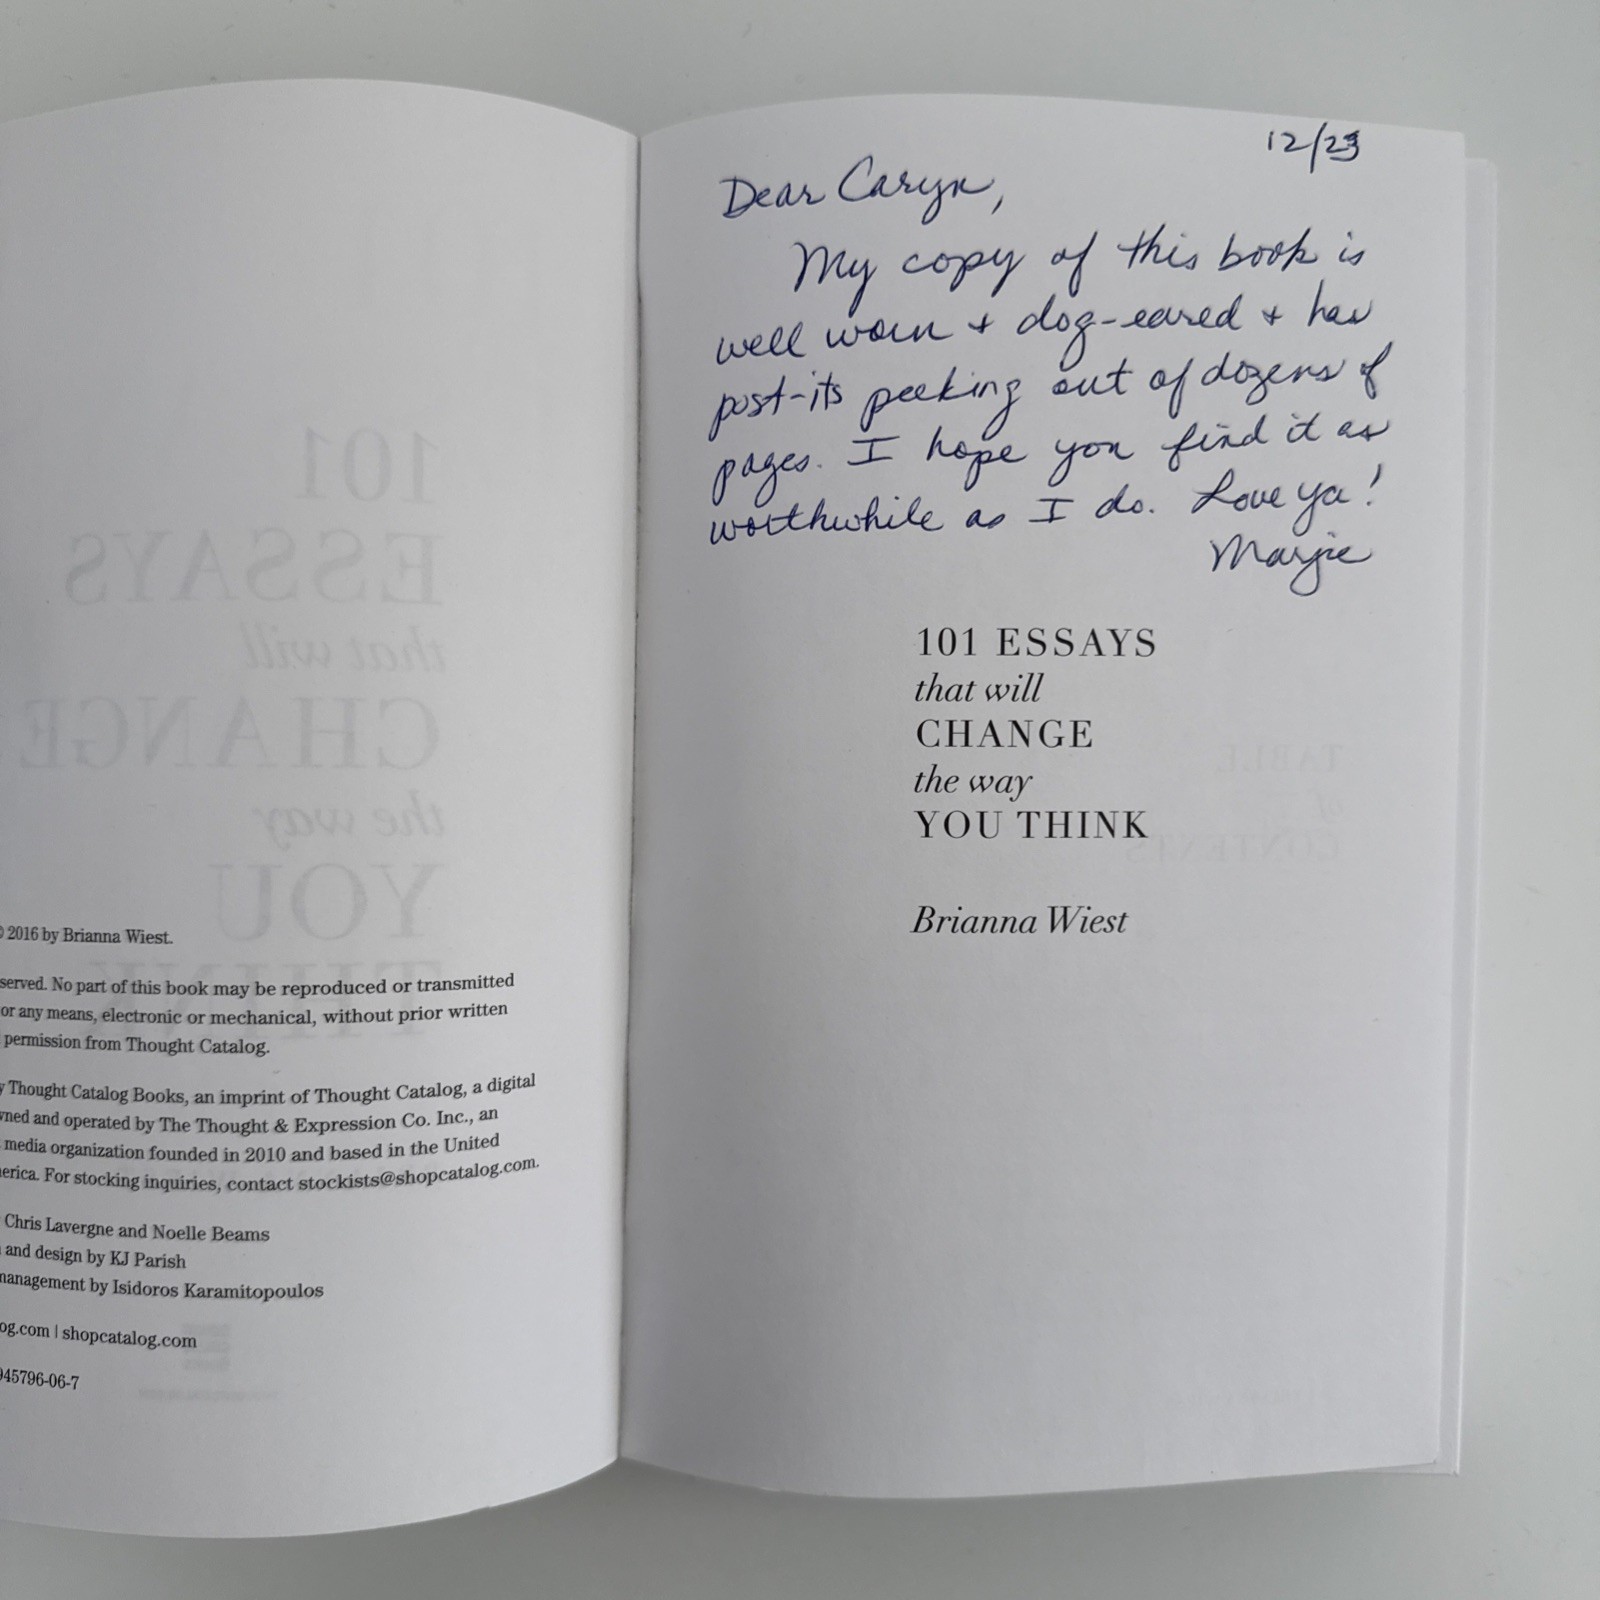 © 2016 by Brianna Wiest.
served. No part of this book may be reproduced or transmitted
or any means, electronic or mechanical, without prior written
permission from Thought Catalog.
y Thought Catalog Books, an imprint of Thought Catalog, a digital
wned and operated by The Thought & Expression Co. Inc., an
media organization founded in 2010 and based in the United
merica. For stocking inquiries, contact stockists@shopcatalog.com.
Chris Lavergne and Noelle Beams
and design by KJ Parish
management by Isidoros Karamitopoulos
og.com | shopcatalog.com
945796-06-7
101
ESSAYS
that will
CHANGE
the way
YOU
THINK
12/23
Dear Caryn,
My copy of this book is
well worn + dog-eared + has
post-its peeking out of dozens of
pages. I hope you find it as
worthwhile as I do. Love ya!
Marjie
101 ESSAYS
that will
CHANGE
the way
YOU THINK
Brianna Wiest
TABLE
of
CONTENTS